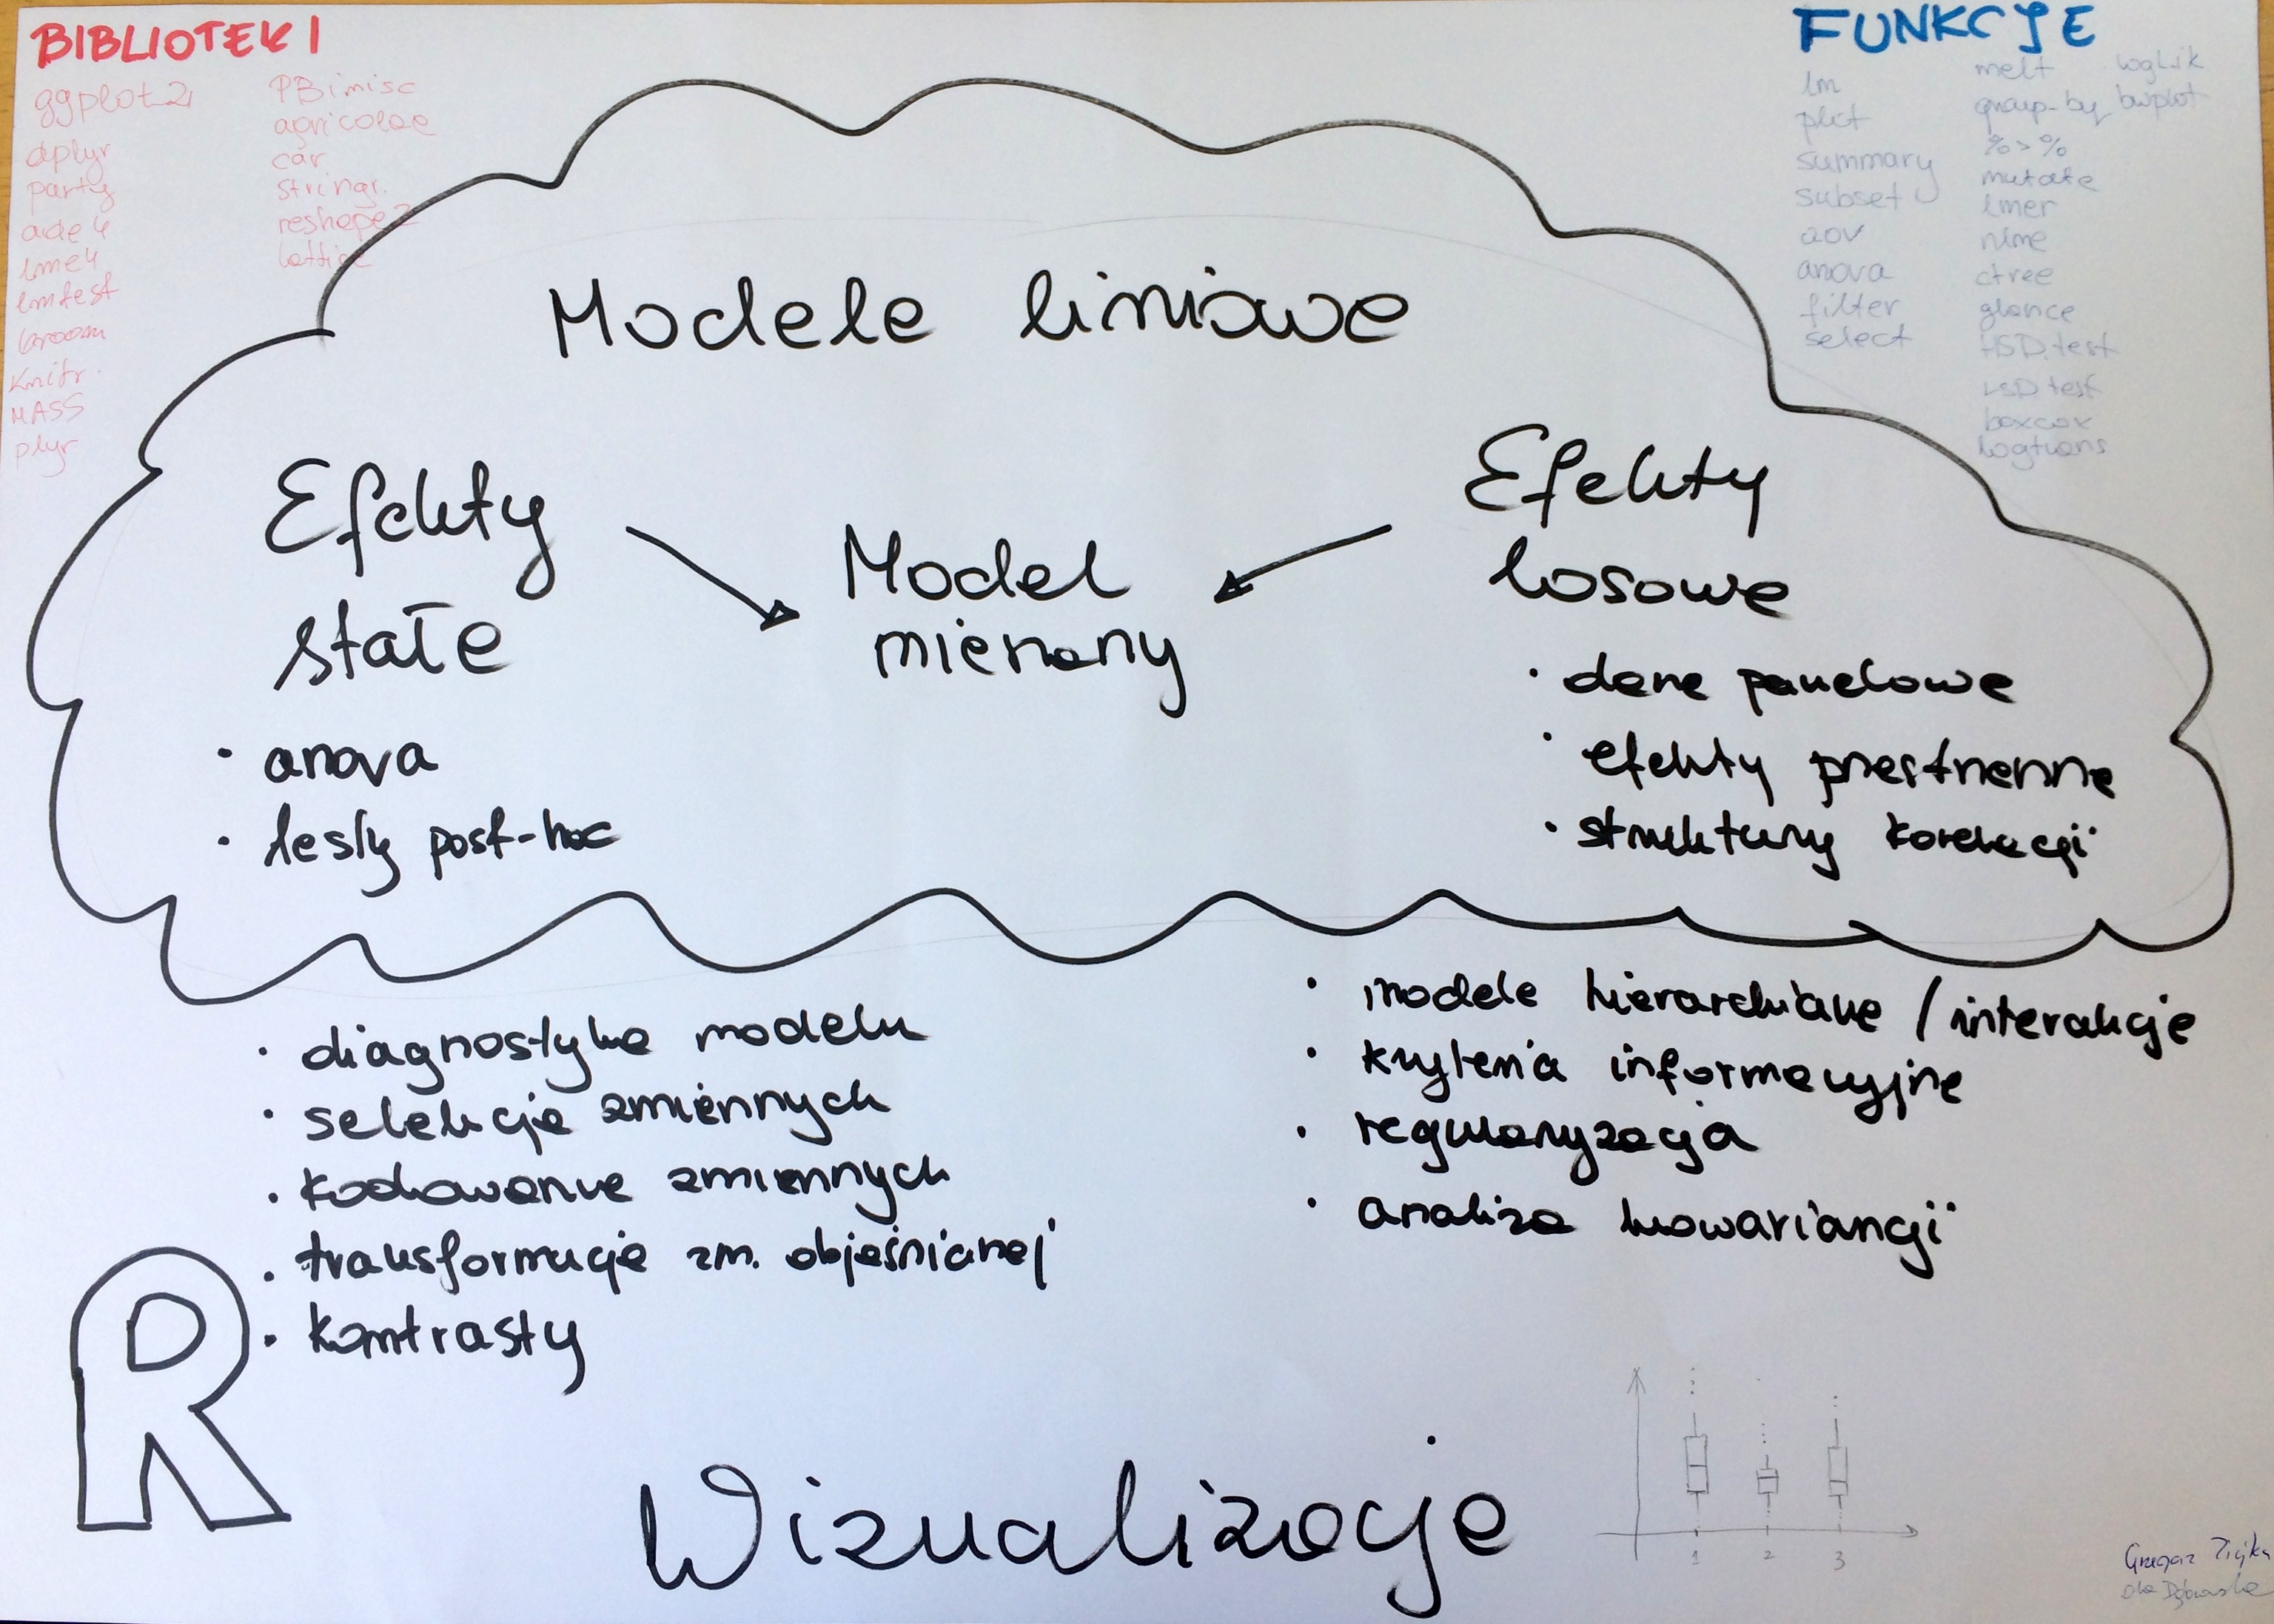 BIBLIOTEKI
ggplot2
dplyr
party
ade4
lme4
lmtest
broom
knitr
MASS
plyr
PBimisc
agricolae
car
stringr
reshape2
lattice
FUNKCJE
lm
plot
summary
subset
aov
anova
filter
select
melt
group-by
%>%
mutate
lmer
nlme
ctree
glance
HSD.test
LSD.test
boxcox
logtrans
logLik
bwplot
Modele liniowe
Efekty
stałe
Model
mieszany
Efekty
losowe
• anova
• testy post-hoc
• dane panelowe
• efekty przestrzenne
• struktury korelacji
• diagnostyka modelu
• selekcja zmiennych
• kodowanie zmiennych
• transformacje zm. objaśnianej
• kontrasty
• modele hierarchiczne / interakcje
• kryteria informacyjne
• regularyzacja
• analiza kowariancji
R
Wizualizacje
1 2 3
Grzegorz
Ola Dąbrowska